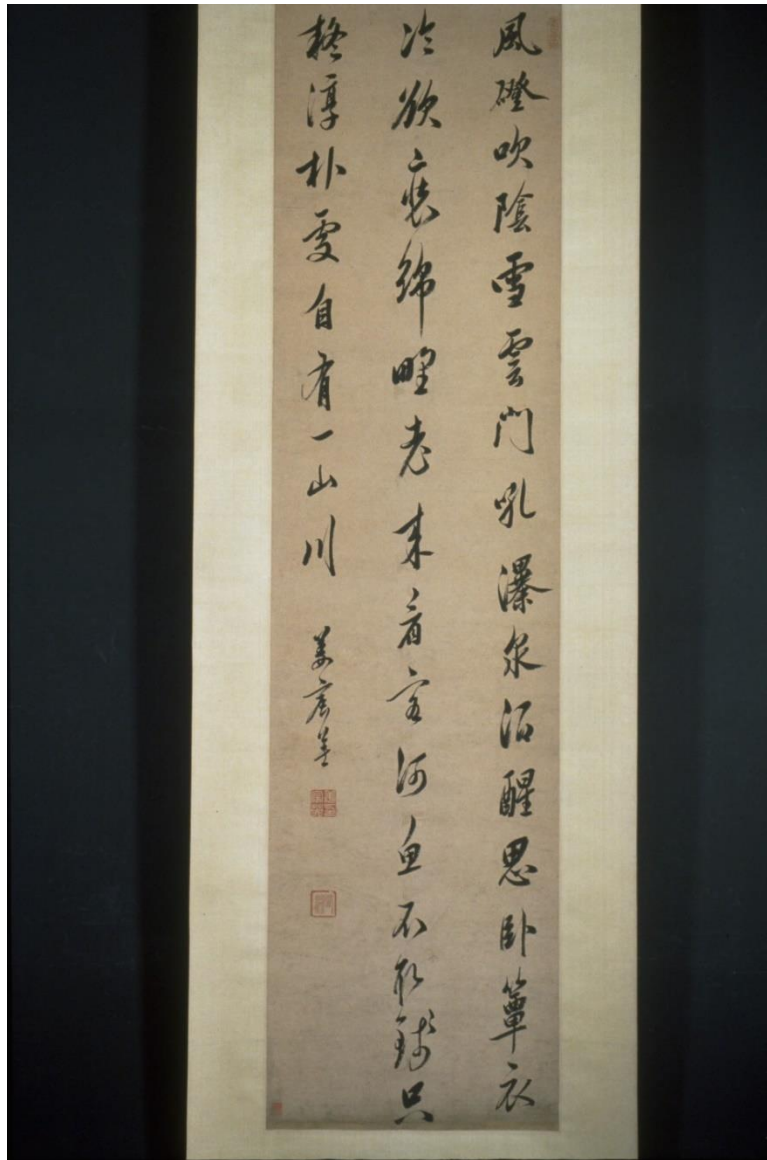 風磴吹陰雪雲門吼瀑泉酒醒思臥簟衣
冷欲裝綿野老來看客河魚不取錢只
疑淳朴處自有一山川
姜宸英